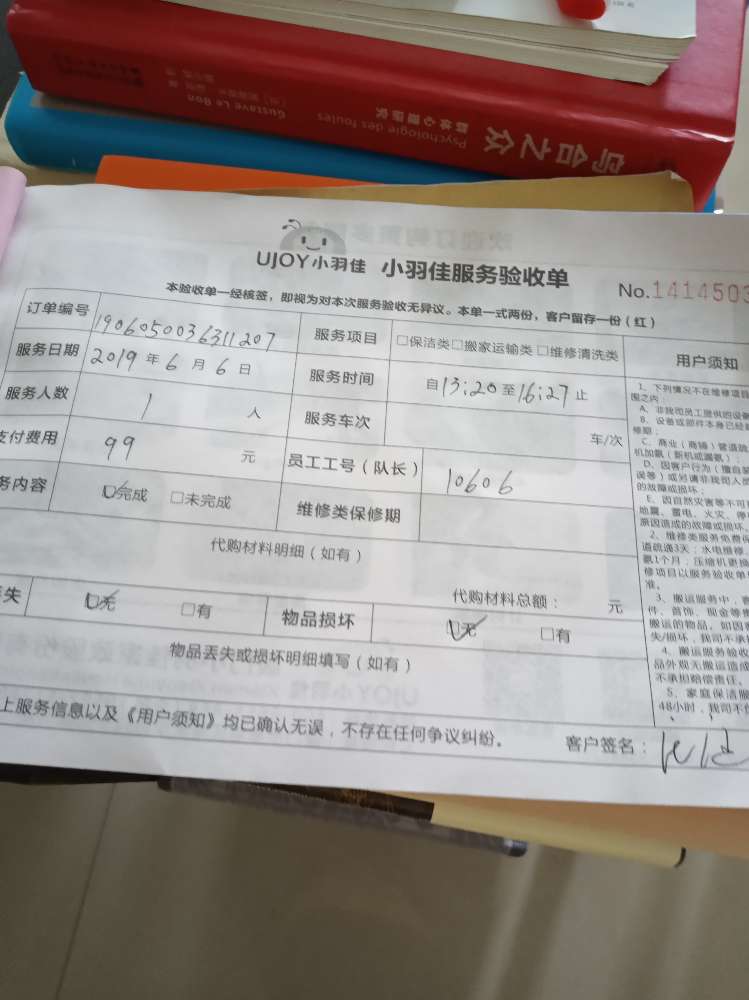 乌合之众
群体心理研究
Psychologie des foules
Gustave Le Bon
UJOY小羽佳 小羽佳服务验收单
No.1414503
本验收单一经核签，即视为对本次服务验收无异议。本单一式两份，客户留存一份（红）
订单编号 1906050036311207 服务项目 □保洁类□搬家运输类□维修清洗类
服务日期 2019年6月6日 服务时间 自13:20至16:27止
服务人数 1人 服务车次 车/次
支付费用 99元 员工工号（队长） 10606
务内容 ☑完成 □未完成 维修类保修期
代购材料明细（如有）
代购材料总额： 元
失 ☑无 □有 物品损坏 ☑无 □有
物品丢失或损坏明细填写（如有）
上服务信息以及《用户须知》均已确认无误，不存在任何争议纠纷。
客户签名：
用户须知
1、下列情况不在维修项目
围之内：
A、非我司员工提供的设备
B、设备或部件本身已经超
修期；
C、商业（商铺）管道疏
机加氨（新机或漏氨）；
D、因客户行为（擅自
误等）或对请非我司人员
的故障或损坏；
E、因自然灾害等不可
地震、雷电、火灾、停
原因造成的故障或损坏。
2、维修类服务免费保
道疏通3天；水电维修
氨1个月；压缩机更换
修项目以服务验收单
准。
3、搬运服务中，
件、首饰、现金等
搬运的物品，如因
失/损坏，我司不承
4、搬运服务验收
品外观无搬运造成
不承担赔偿责任。
5、家庭保洁服
48小时，我司不